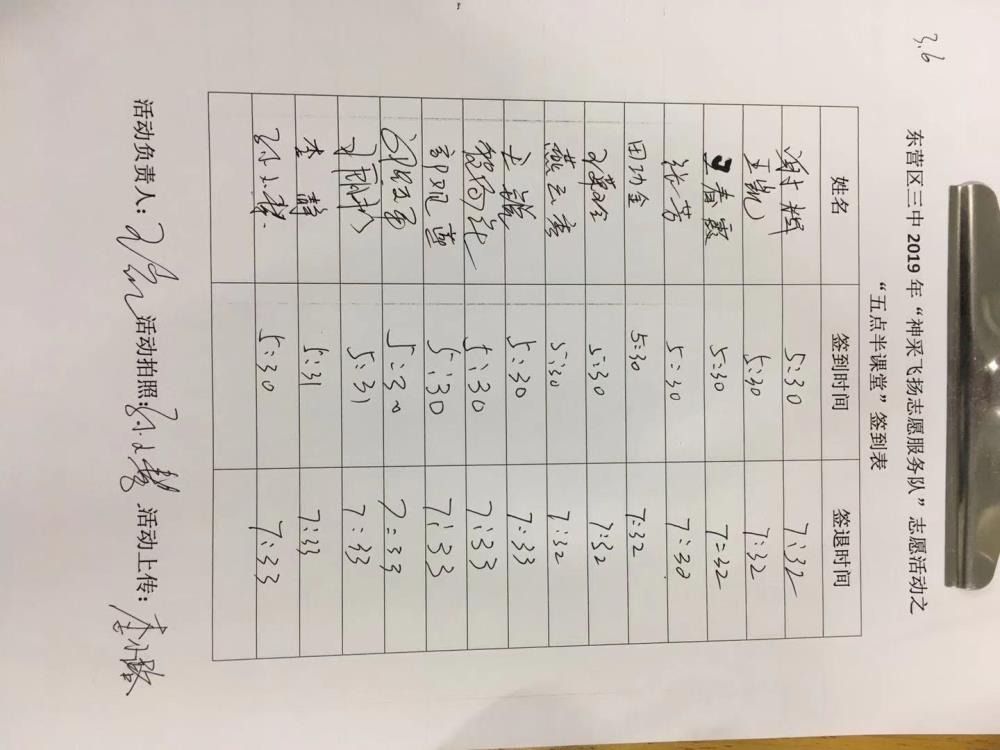 3.6
东营区三中 2019 年“神采飞扬志愿服务队”志愿活动之
“五点半课堂”签到表
姓名 签到时间 签退时间
谢辉 5:30 7:32
王凯 5:30 7:32
王春霞 5:30 7:32
张芳 5:30 7:30
田功金 5:30 7:32
5:30 7:32
燕云秀 5:30 7:32
5:30 7:33
5:30 7:33
郭观莲 5:30 7:33
5:30 7:33
5:31 7:33
李静 5:31 7:33
5:30 7:33
活动负责人: 活动拍照: 活动上传: 李小璐